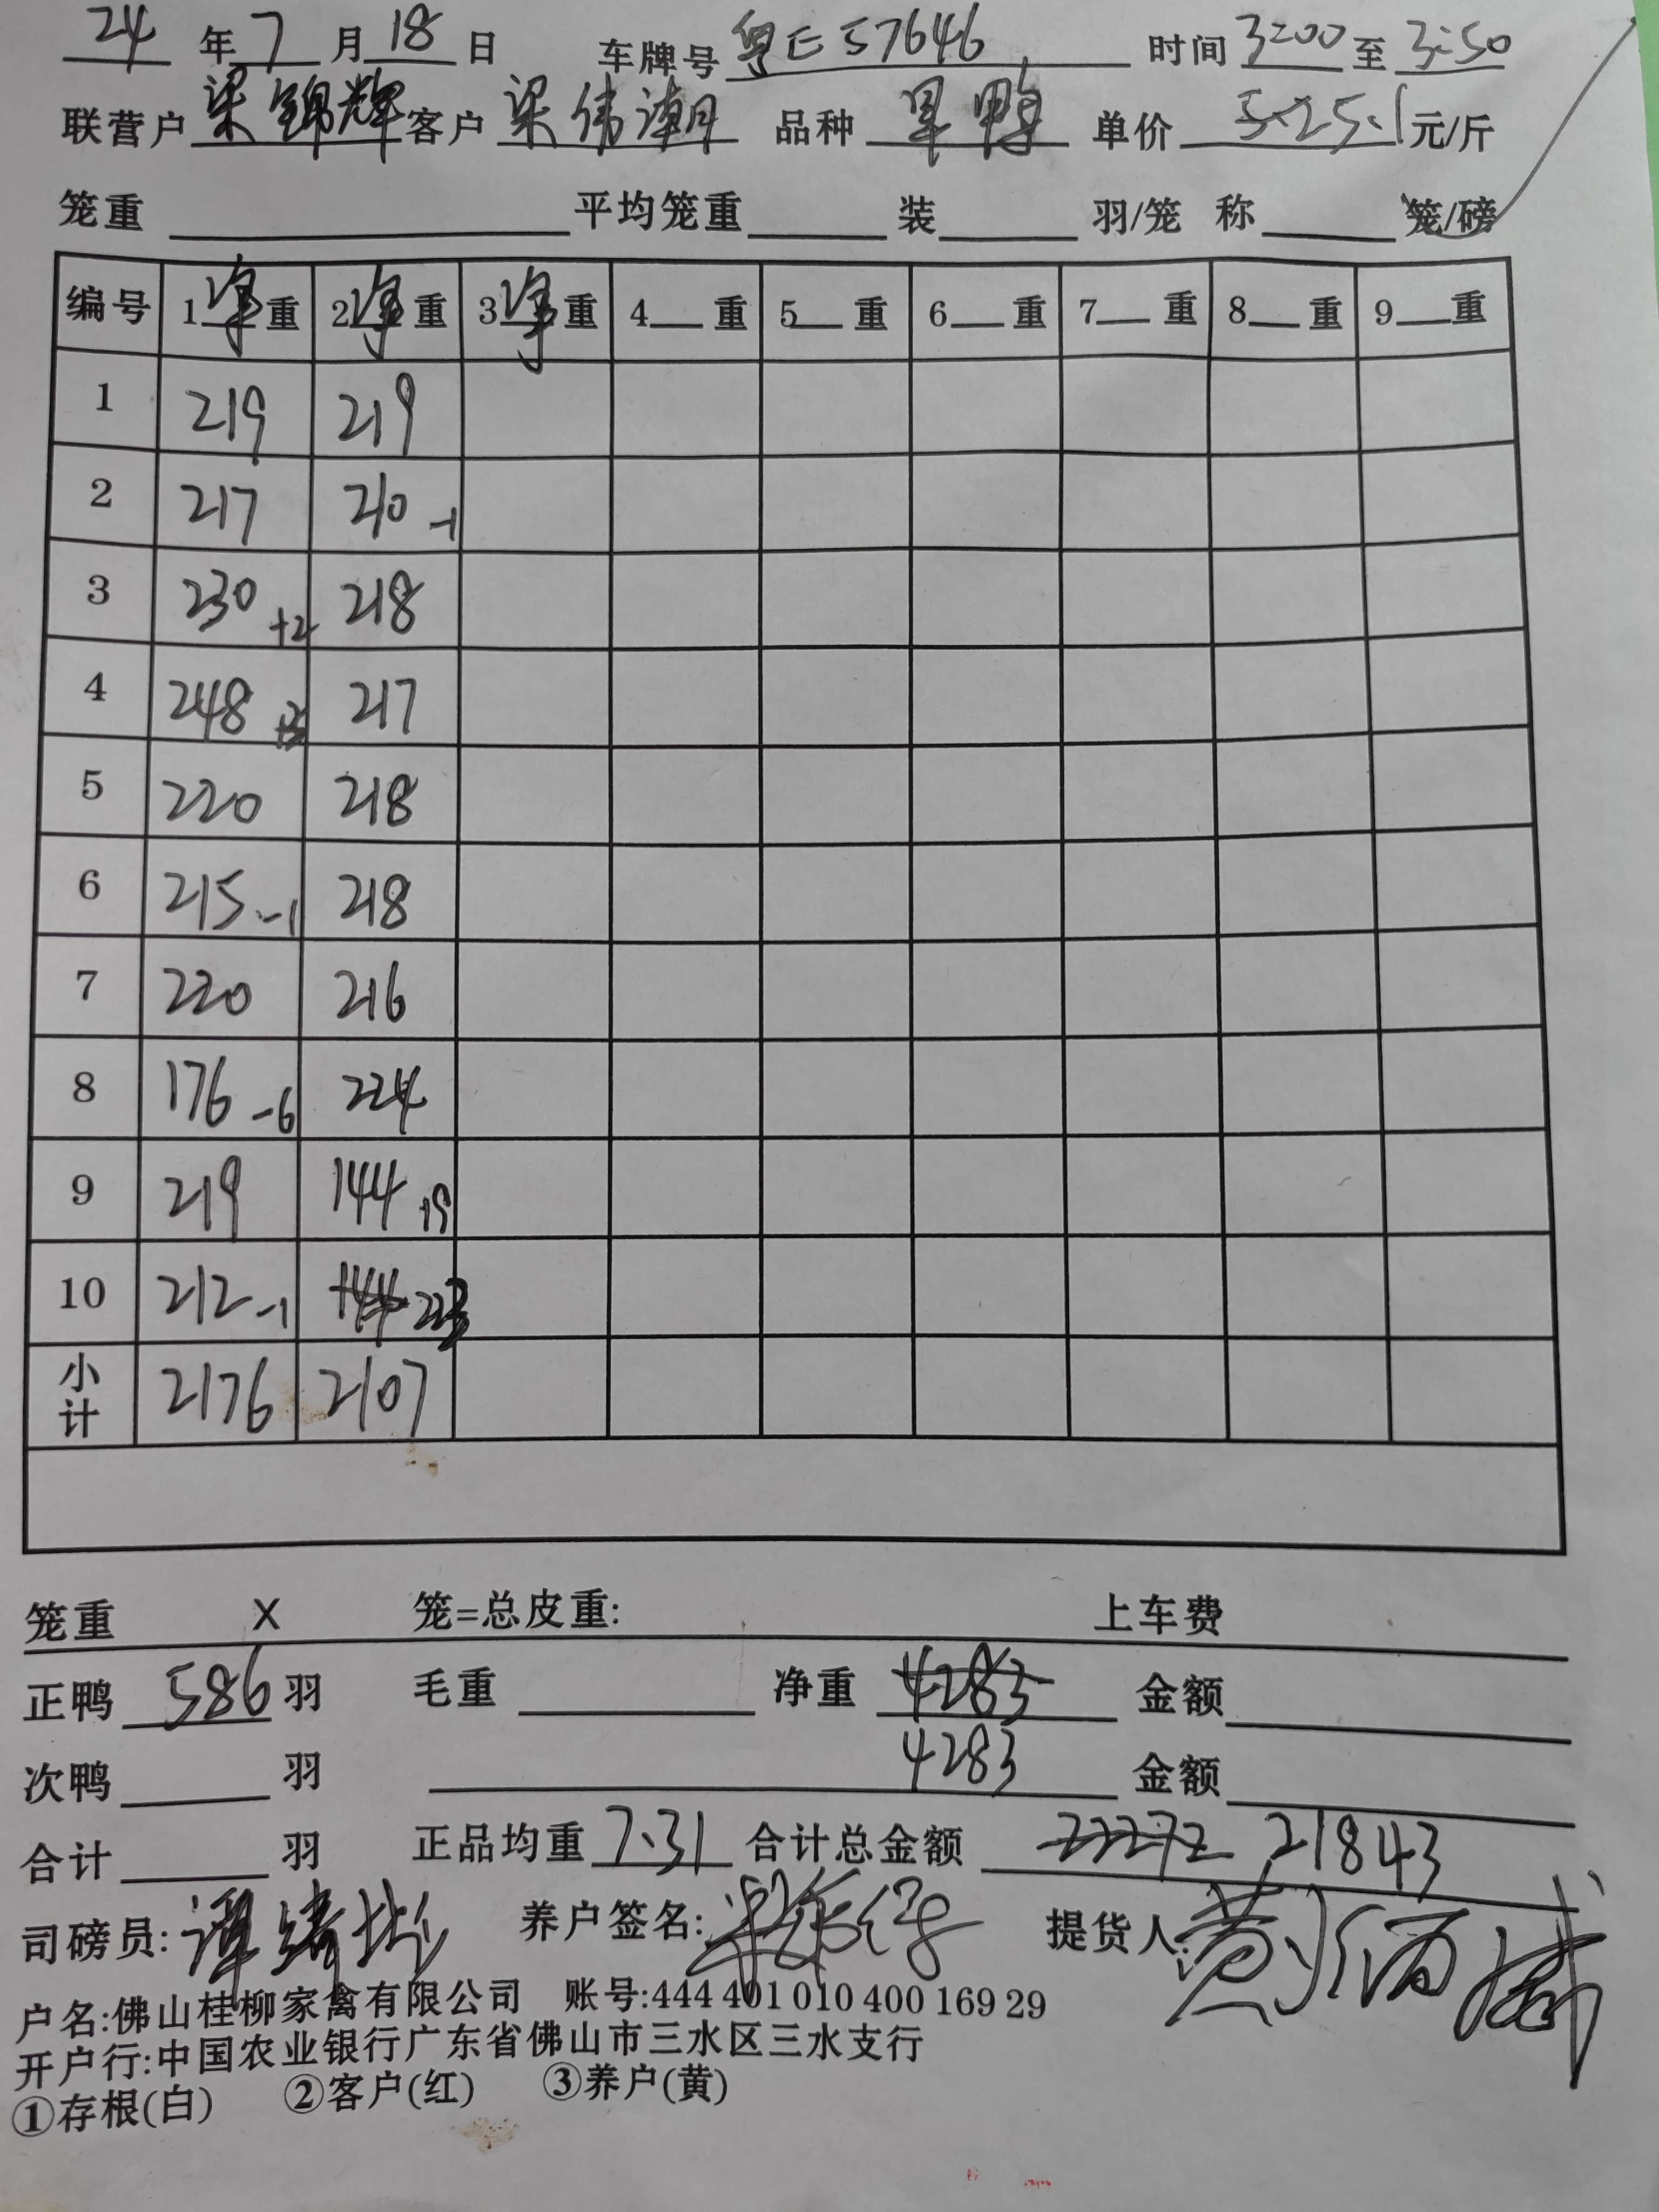 24 年 7 月 18 日 车牌号 粤E57646 时间 3:00 至 3:50
联营户 梁锦辉 客户 梁伟潮 品种 旱鸭 单价 5.1 元/斤
笼重 平均笼重 装 羽/笼 称 笼/磅
编号 1净重 2净重 3净重 4重 5重 6重 7重 8重 9重
1 219 219
2 217 210 -1
3 230 +2 218
4 248 217
5 220 218
6 215 -1 218
7 220 216
8 176 -6 224
9 219 144 +9
10 212 -1 144 223
小计 2176 2107
笼重 X 笼=总皮重: 上车费
正鸭 586 羽 毛重 净重 4283 金额
次鸭 羽 4283 金额
合计 羽 正品均重 7.31 合计总金额 21843
司磅员: 养户签名: 提货人:
户名:佛山桂柳家禽有限公司 账号:444 401 010 400 169 29
开户行:中国农业银行广东省佛山市三水区三水支行
①存根(白) ②客户(红) ③养户(黄)